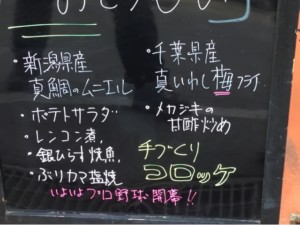 ・新潟県産
真鯛のムーエル
・ポテトサラダ
・レンコン煮
・銀ひらす焼魚
・ぶりカマ塩焼
・千葉県産
真いわし梅フライ
・メカジキの
甘酢炒め
手づくり
コロッケ
いよいよプロ野球開幕!!